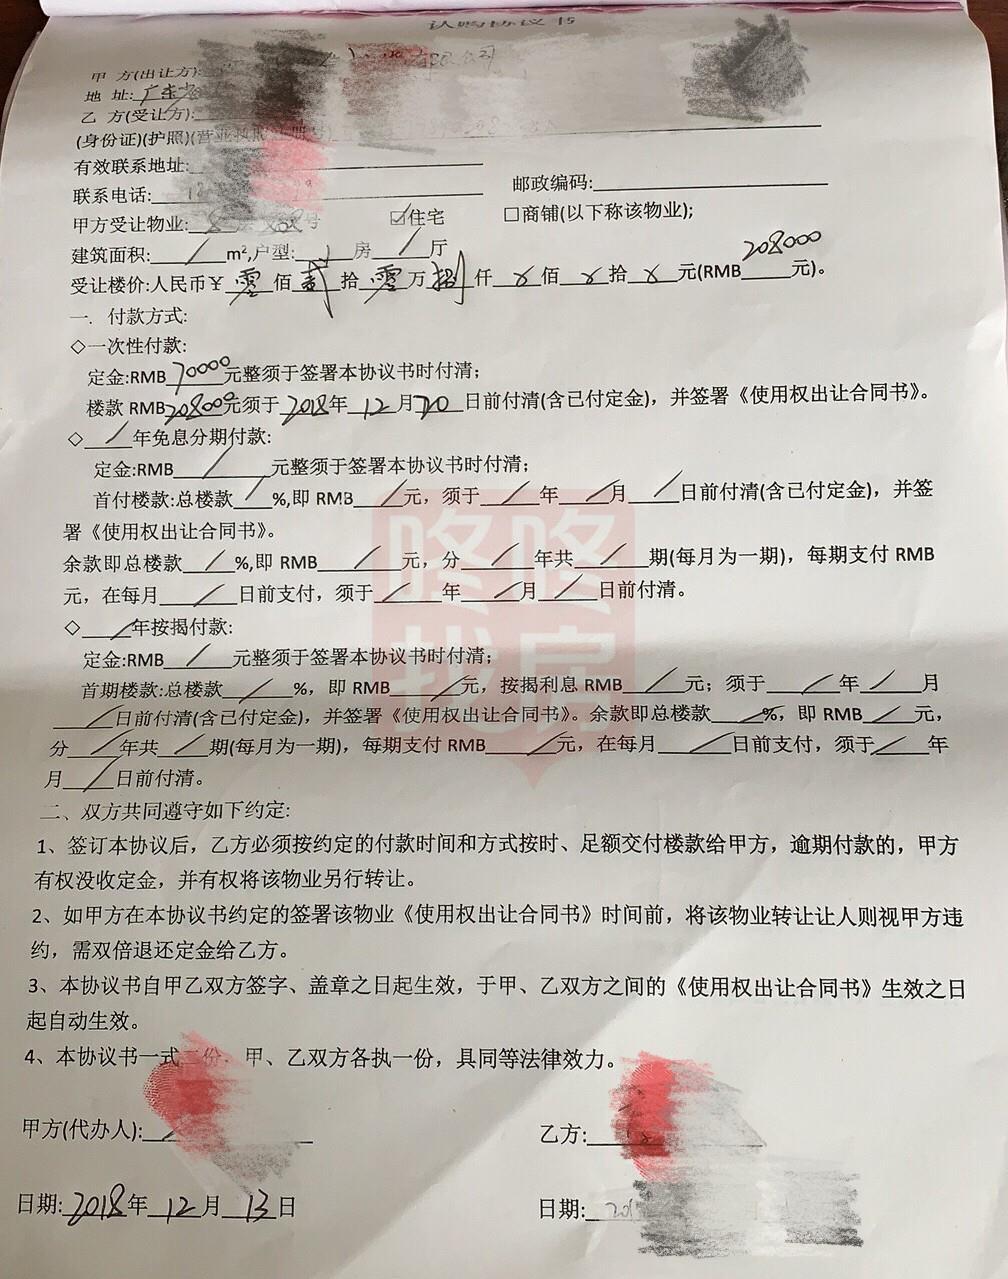 认购协议书
甲 方(出让方): 有限公司
地 址: 广东省
乙 方(受让方):
(身份证)(护照)(营业执照
有效联系地址:
联系电话: 邮政编码:
甲方受让物业: 号 ☑住宅 □商铺(以下称该物业);
建筑面积: / m²,户型: 1 房 / 厅
受让楼价:人民币¥ 零 佰 贰 拾 零 万 捌 仟 x 佰 x 拾 x 元(RMB 208000 元)。
一. 付款方式:
◇一次性付款:
定金:RMB 70000 元整须于签署本协议书时付清;
楼款 RMB 208000 元须于 2018 年 12 月 20 日前付清(含已付定金),并签署《使用权出让合同书》。
◇ / 年免息分期付款:
定金:RMB / 元整须于签署本协议书时付清;
首付楼款:总楼款 / %,即 RMB / 元,须于 / 年 / 月 / 日前付清(含已付定金),并签
署《使用权出让合同书》。
余款即总楼款 / %,即 RMB / 元,分 / 年共 / 期(每月为一期),每期支付 RMB
元,在每月 / 日前支付,须于 / 年 / 月 / 日前付清。
◇ / 年按揭付款:
定金:RMB / 元整须于签署本协议书时付清;
首期楼款:总楼款 / %,即 RMB / 元,按揭利息 RMB / 元;须于 / 年 / 月
/ 日前付清(含已付定金),并签署《使用权出让合同书》。余款即总楼款 / %,即 RMB / 元,
分 / 年共 / 期(每月为一期),每期支付 RMB / 元,在每月 / 日前支付,须于 / 年
月 / 日前付清。
二、双方共同遵守如下约定:
1、签订本协议后,乙方必须按约定的付款时间和方式按时、足额交付楼款给甲方,逾期付款的,甲方
有权没收定金,并有权将该物业另行转让。
2、如甲方在本协议书约定的签署该物业《使用权出让合同书》时间前,将该物业转让让人则视甲方违
约,需双倍退还定金给乙方。
3、本协议书自甲乙双方签字、盖章之日起生效,于甲、乙双方之间的《使用权出让合同书》生效之日
起自动生效。
4、本协议书一式二份,甲、乙双方各执一份,具同等法律效力。
甲方(代办人): 乙方:
日期: 2018 年 12 月 13 日 日期: 201
咚咚
找房